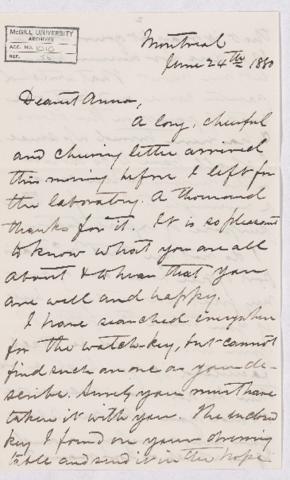 McGILL UNIVERSITY
ARCHIVES
ACC. NO.
REF.
Montreal
June 24th 1880
Dearest Anna,
A long, cheerful
and cheering letter arrived
this morning before I left for
the laboratory. A thousand
thanks for it. It is so pleasant
to know what you are all
about & to hear that you
are well and happy.
I have searched everywhere
for the watch-key, but cannot
find such an one as you de-
scribe. Surely you must have
taken it with you. The enclosed
key I found on your dressing
table and send it in the hope